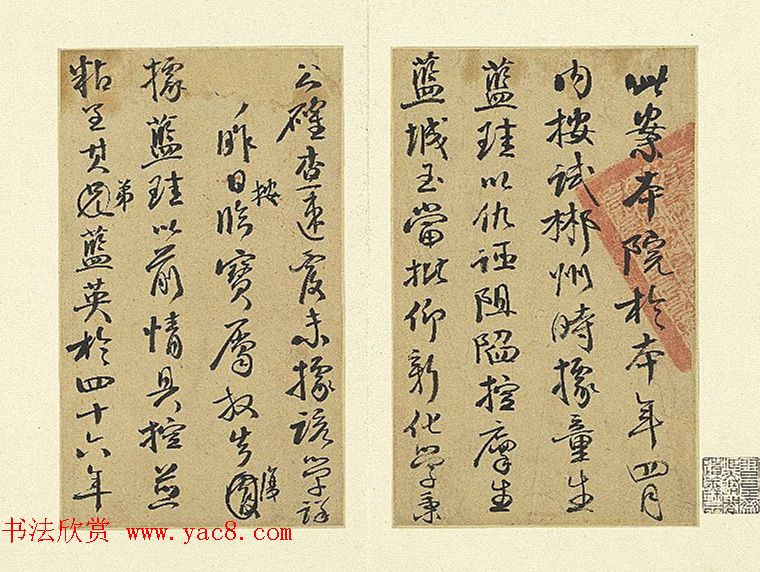 此案本院於本年四月
內按試郴州時據童生
藍珪以仇誣阻陷控廩生
藍城玉當批仰新化學秉
公確查速覆未據該學詳
昨日按臨寶屬放告復
據藍珪以前情具控並
粘呈其弟藍英於四十六年
书法欣赏 www.yac8.com